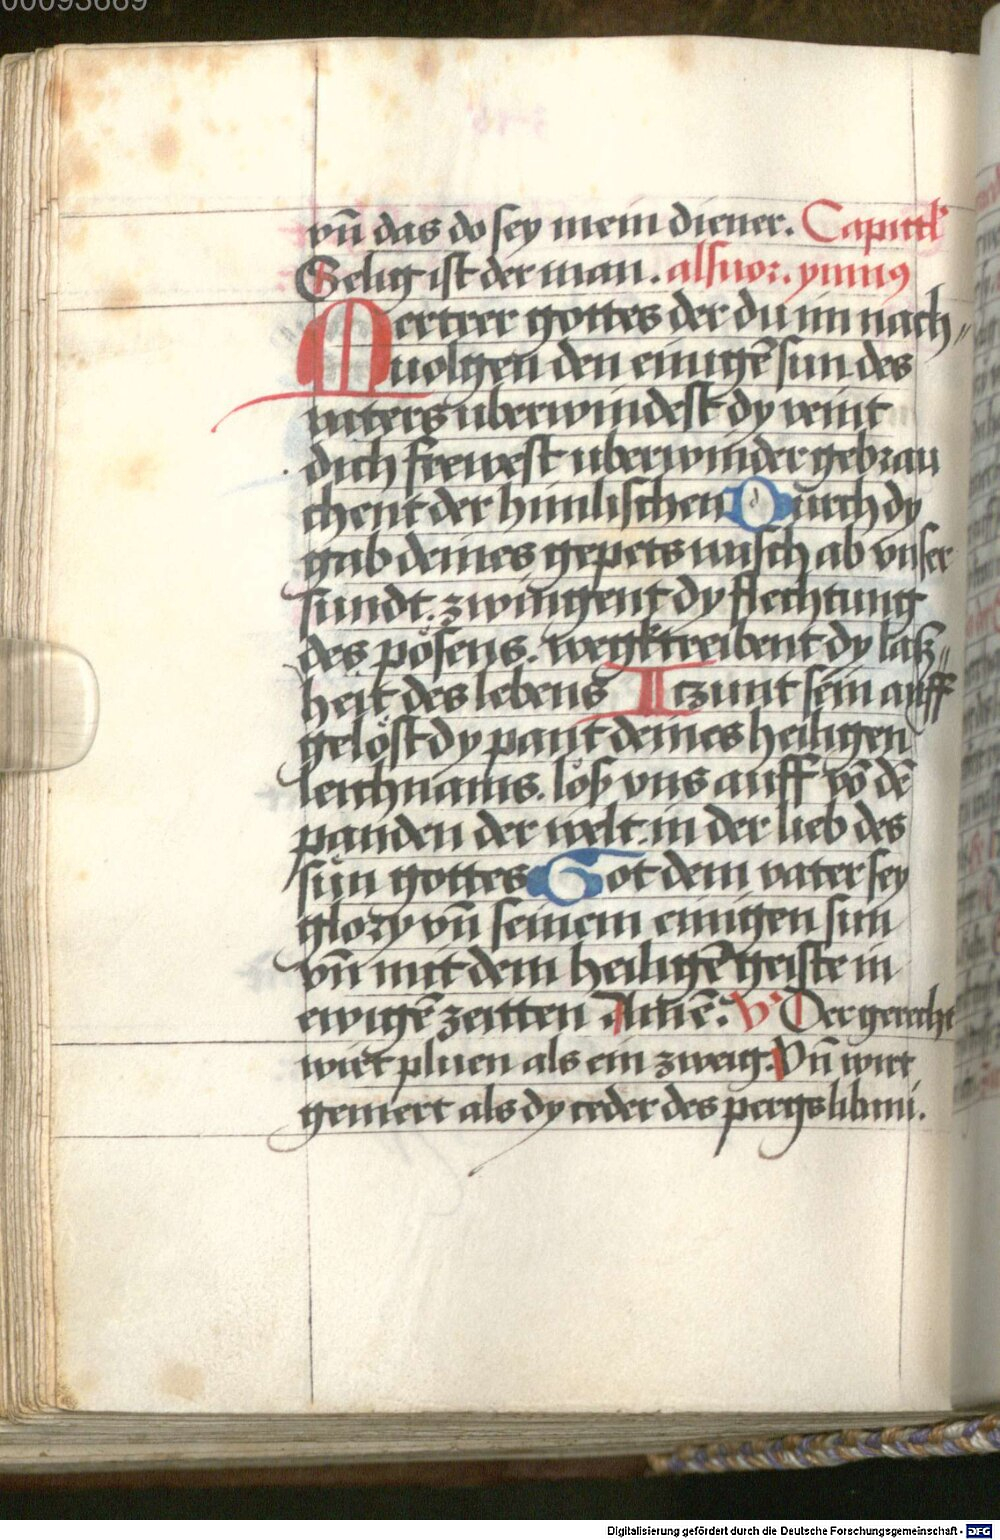 00093669
vn̄ das do sey mein diener. Capittl̕
Selig ist der man. als uor. ymnus
Mertrer gottes der du im nach〃
uolgen den einigē sun des
vaters uberwindest dy veint
dich frewest uberwinder gebrau
chent der himlischen Durch dy
gab deines gepets wasch ab vnser
sundt. zwingent dy flechtung
des pösens. wegktreibent dy laß〃
heit des lebens Itzunt sein auff
gelöst dy pant deines heiligen
leichnams. löß vns auff vō dē
panden der welt. in der lieb des
sün gottes Got dem vater sey
glory vn̄ seinem einigen sun
vn̄ mit dem heiligē geiste in
ewigē zeitten Amē. V̕ Der gerecht
wirt pluen als ein zweig. Vn̄ wirt
gemert als dy ceder des pergs libani.
Digitalisierung gefördert durch die Deutsche Forschungsgemeinschaft - DFG